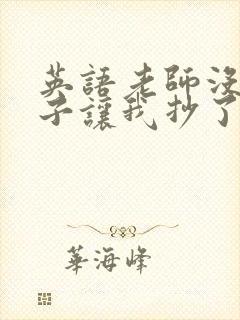 英語老師沒
子讓我抄了
華海峰